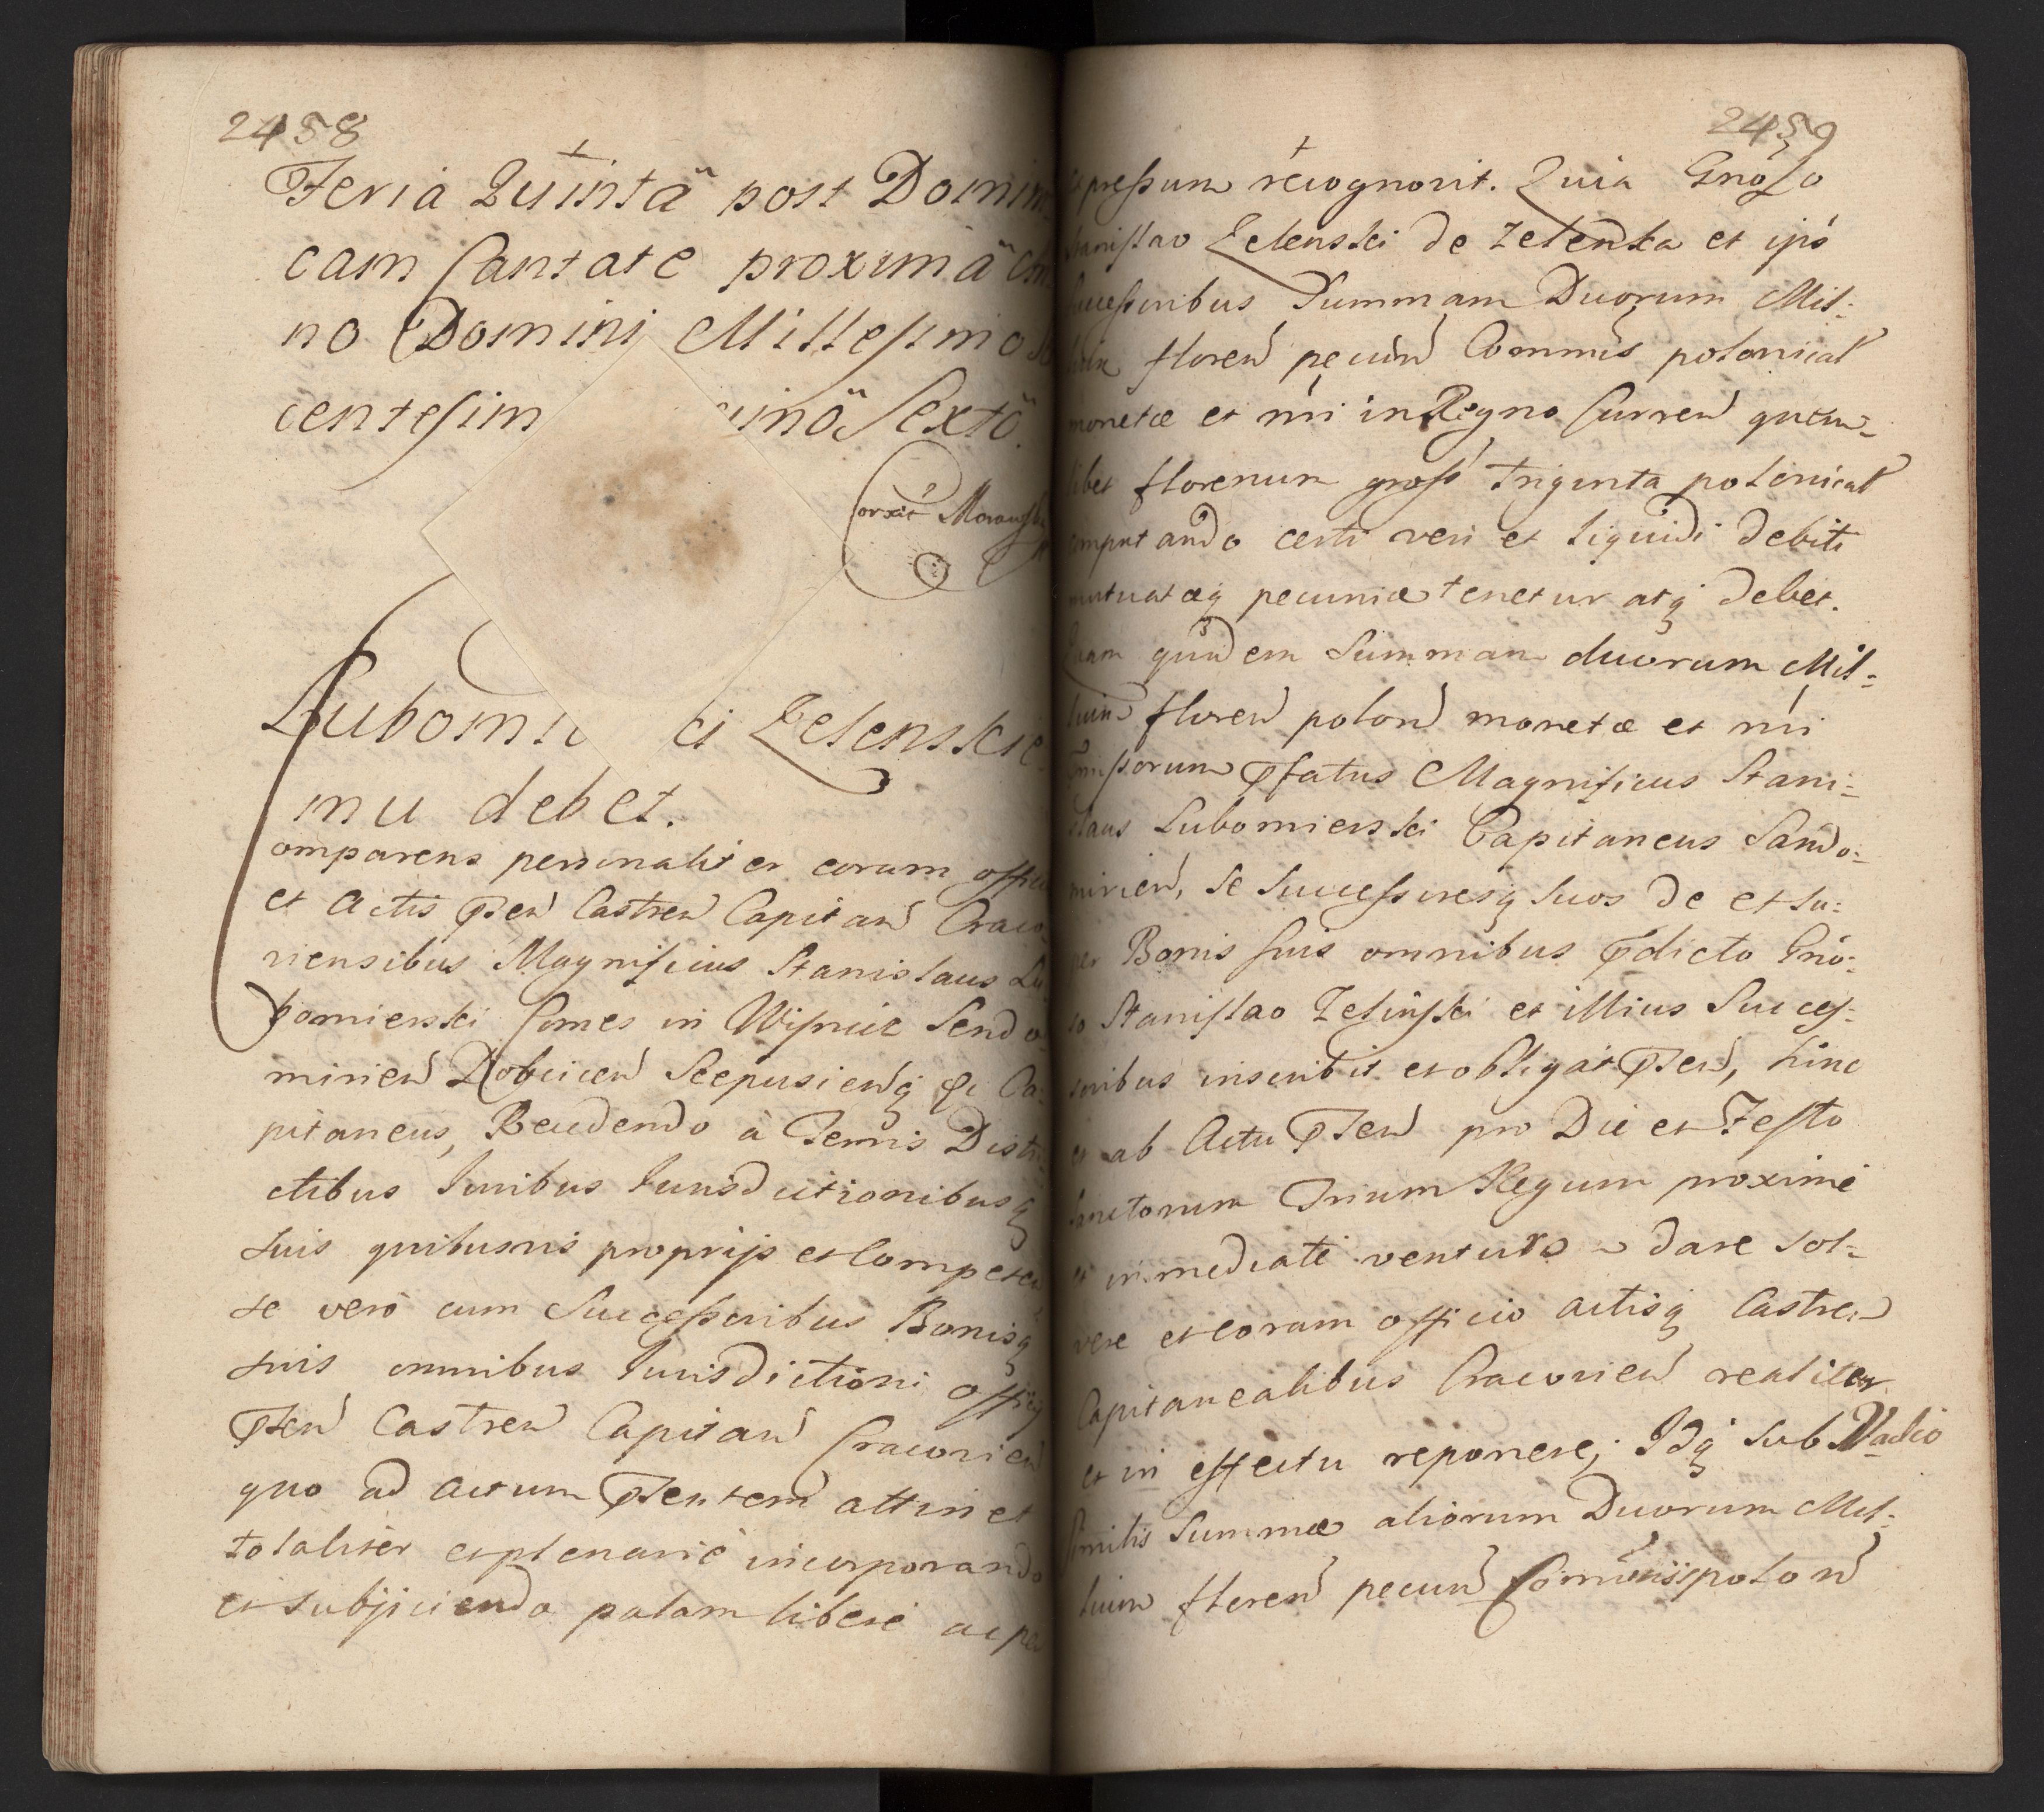 2458
Feria Quinta post Domini
cam Cantate proxima An
no Domini Millesimo
centesim Sexto.
Corxit
Lubomi ci Zelenskie
mu debet.
omparens personaliter coram offi
et Actis Psen Castren Capitan Craco
viensibus Magnificus Stanislaus Lu
bomierski Comes in Wisnic Sendo
mirien Dobcicen Scepusienq Ca:
pitaneus, Recedendo à Terris Distri
ctibus Iuribus Iurisdictionibusq
suis quibusvis proprijs et Competen
se vero cum Successoribus Bonisq
suis omnibus Iurisdictioni Officij
Psen Castren Capitan Cracovien
quo ad actum Psentem attinet
totaliter et plenarie incorporando
et subjiciendo palam libere ac per
2459
expressum recognovit. Quia Gnoso
Stanislao Zelenski de Zelenka et ips
successoribus Summam Duorum Mil:
lium floren pecun Commis polonical
monetæ et nri in Regno Curren quem=
libet florenum gross Triginta polonical
computando certi veri et liquidi debiti
mutuatæq pecuniæ tenetur atq debet.
Quam quidem Summam duorum Mil=
lium floren polon monetæ et nri
pmissorum Pfatus Magnificus Stani=
slaus Lubomierski Capitaneus Sando:
mirien, se Successoresq suos de et su:
per Bonis suis omnibus Pdicto Gno:
so Stanislao Zelinski et illius Succes:
soribus inscribit et obligat Psen, hinc
et ab Actu Psen pro Die et Festo
Sanctorum Trium Regum proxime
et immediate venturo dare sol=
vere et coram officio actisq Castren
Capitanealibus Cracovien realiter
et in effectu reponere; Idq sub Vadio
similis Summæ aliorum Duorum Mil=
lium floren pecun Comunis polon